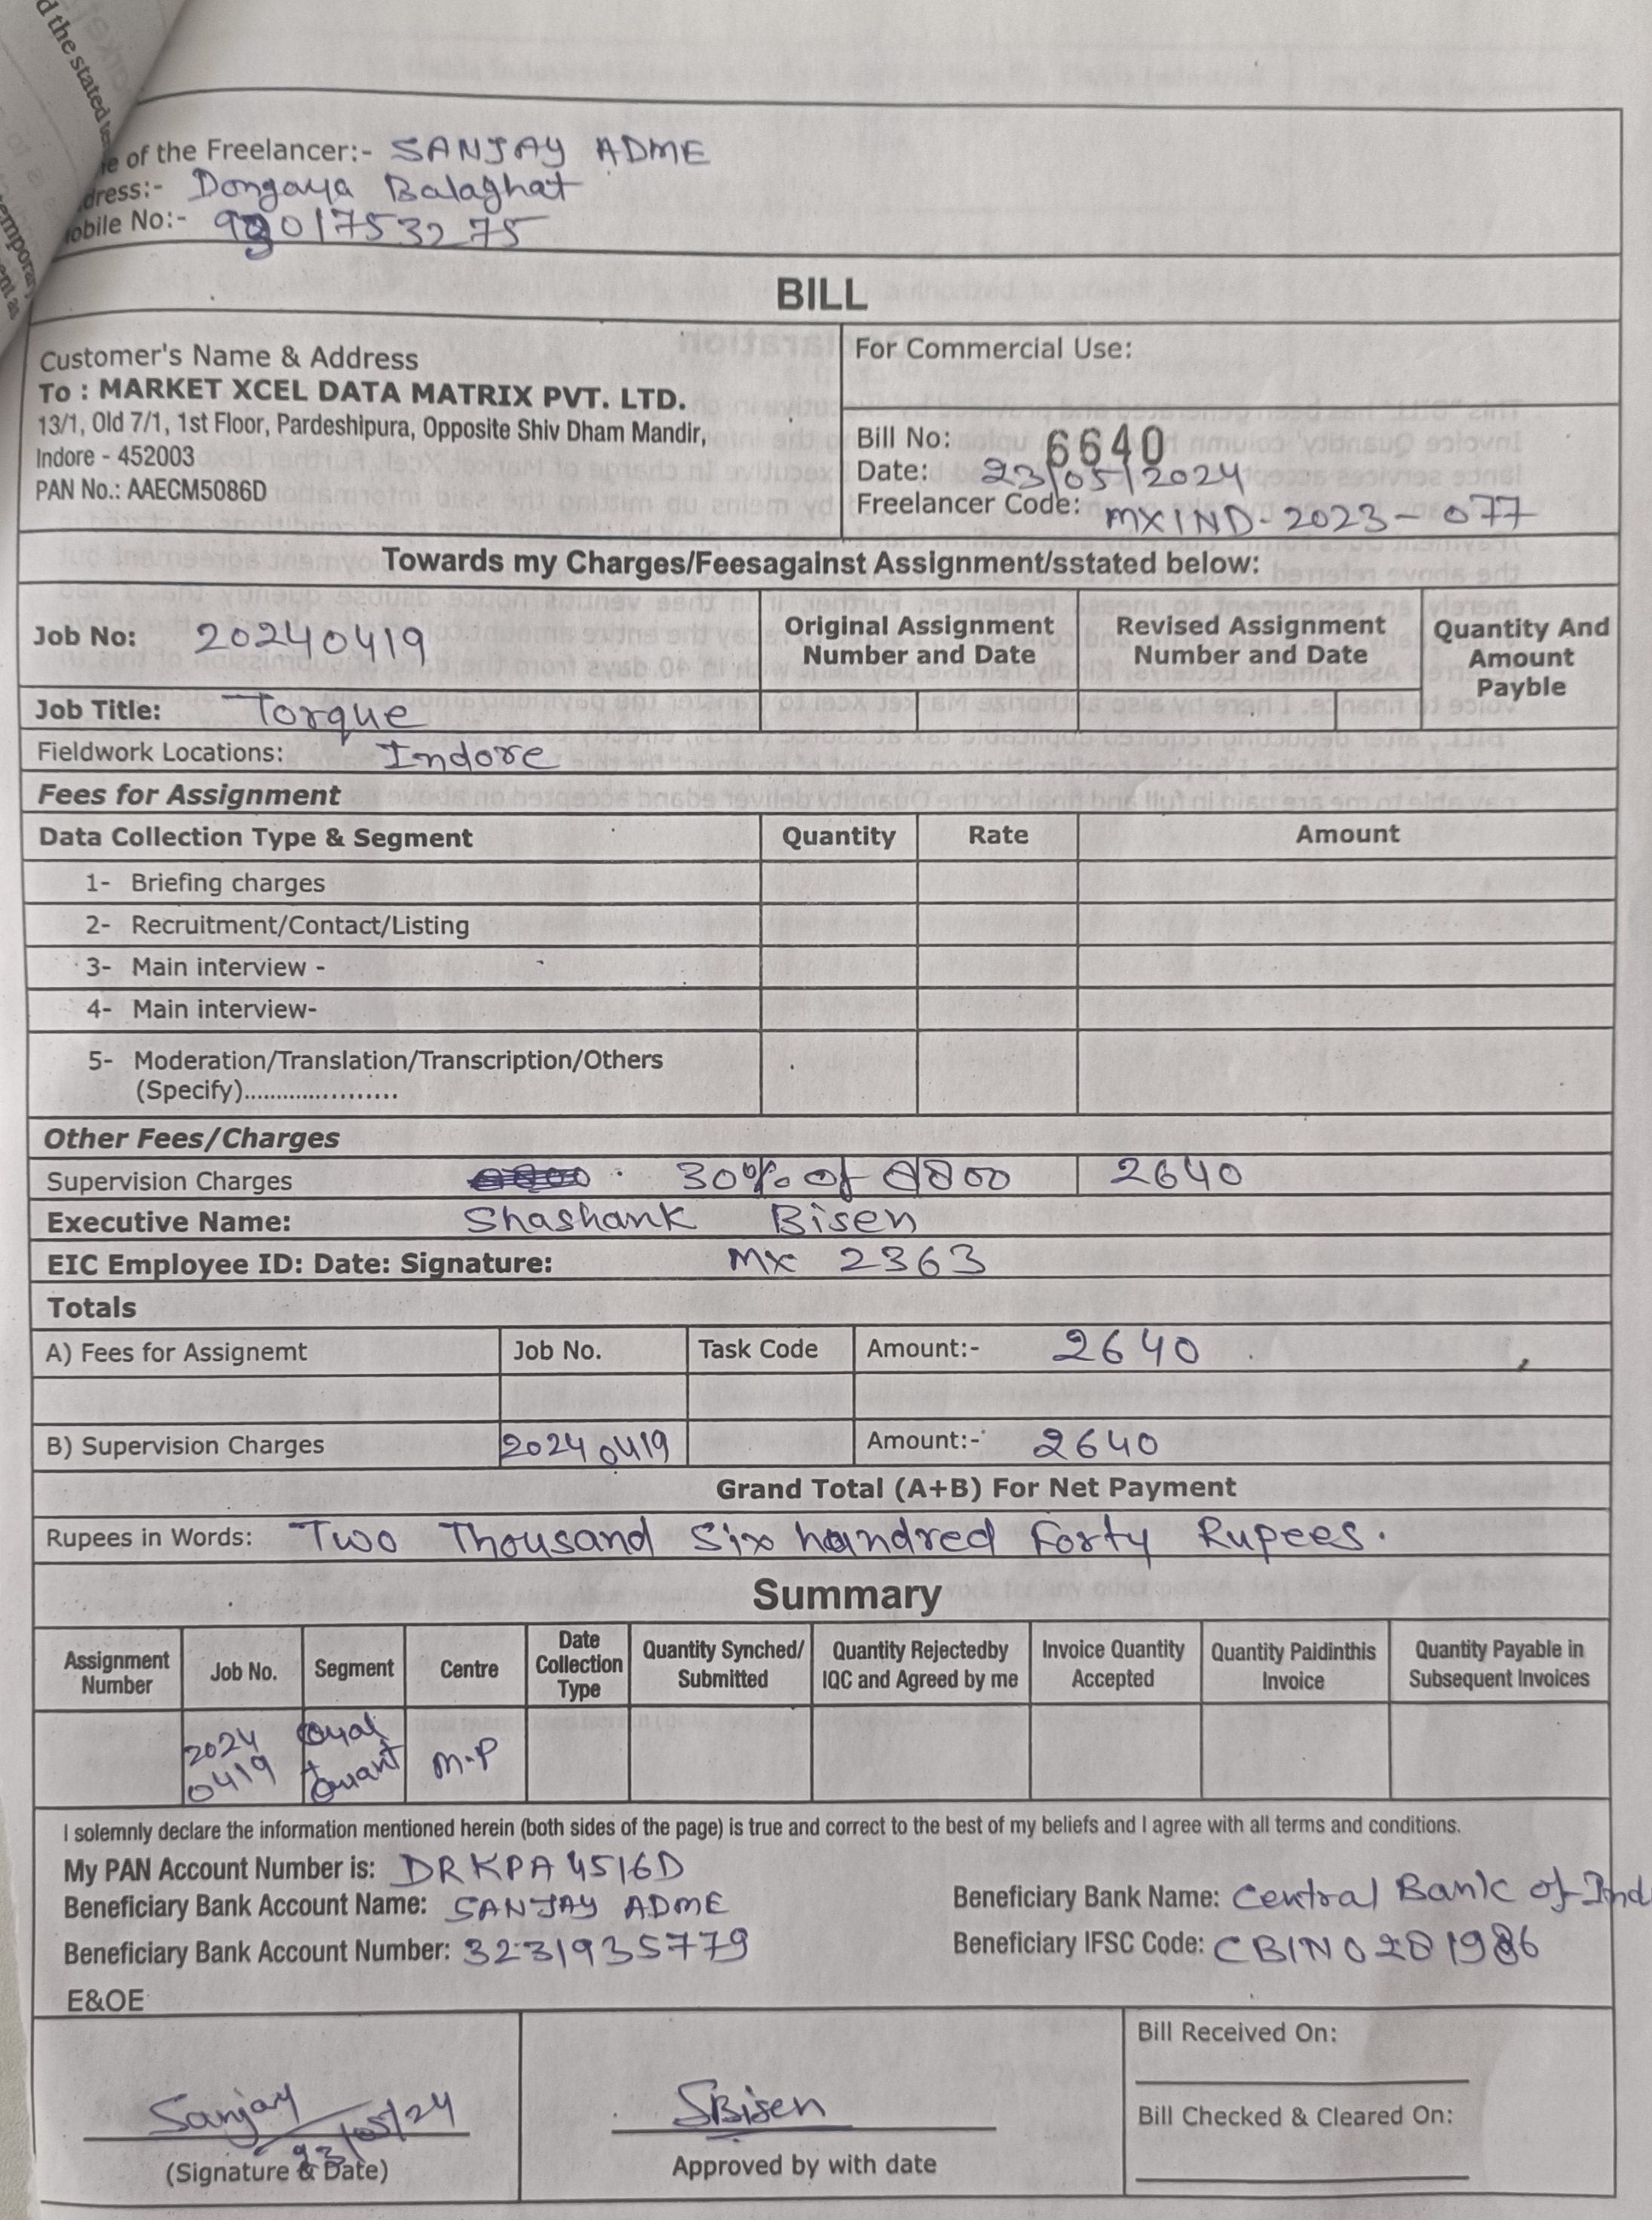 d the stated
emporar
of the Freelancer:- SANJAY ADME
dress:- Dongaya Balaghat
obile No:-
BILL
Customer's Name & Address
To : MARKET XCEL DATA MATRIX PVT. LTD.
13/1, Old 7/1, 1st Floor, Pardeshipura, Opposite Shiv Dham Mandir,
Indore - 452003
PAN No.: AAECM5086D
For Commercial Use:
Bill No: 6640
Date: 23/05/2024
Freelancer Code: MXIND-2023-077
Towards my Charges/Feesagainst Assignment/sstated below:
Job No: 20240419
Original Assignment Number and Date
Revised Assignment Number and Date
Quantity And Amount Payble
Job Title: Torque
Fieldwork Locations: Indore
Fees for Assignment
Data Collection Type & Segment Quantity Rate Amount
1- Briefing charges
2- Recruitment/Contact/Listing
3- Main interview -
4- Main interview-
5- Moderation/Translation/Transcription/Others
(Specify).....................
Other Fees/Charges
Supervision Charges 30% of 8800 2640
Executive Name: Shashank Bisen
EIC Employee ID: Date: Signature: MX 2363
Totals
A) Fees for Assignemt Job No. Task Code Amount:- 2640
B) Supervision Charges 20240419 Amount:- 2640
Grand Total (A+B) For Net Payment
Rupees in Words: Two Thousand Six hundred Forty Rupees.
Summary
Assignment Number
Job No.
Segment
Centre
Date Collection Type
Quantity Synched/ Submitted
Quantity Rejectedby IQC and Agreed by me
Invoice Quantity Accepted
Quantity Paidinthis Invoice
Quantity Payable in Subsequent Invoices
2024
0419
Qual
+ Quant
M.P
I solemnly declare the information mentioned herein (both sides of the page) is true and correct to the best of my beliefs and I agree with all terms and conditions.
My PAN Account Number is: DRKPA4516D
Beneficiary Bank Account Name: SANJAY ADME
Beneficiary Bank Name: Central Bank of Ind
Beneficiary Bank Account Number: 3231935779
Beneficiary IFSC Code: CBIN0281986
E&OE
Sanjay
23/05/24
(Signature & Date)
SBisen
Approved by with date
Bill Received On:
Bill Checked & Cleared On: